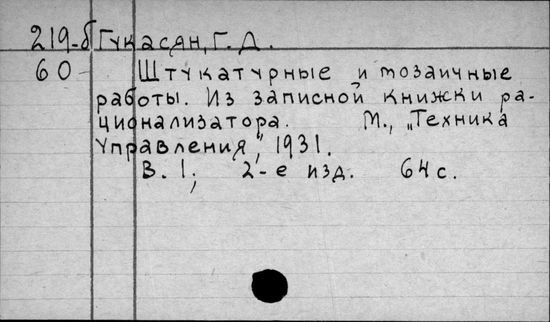 219-б Гукасян, Г. Д.
60 Штукатурные и мозаичные
работы. Из записной книжки ра-
ционализатора. М., „Техника
управления", 1931.
В. 1; 2-е изд. 64 с.